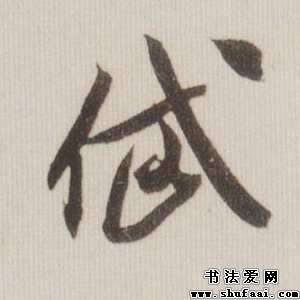 岱
书法爱网
www.shufaai.com